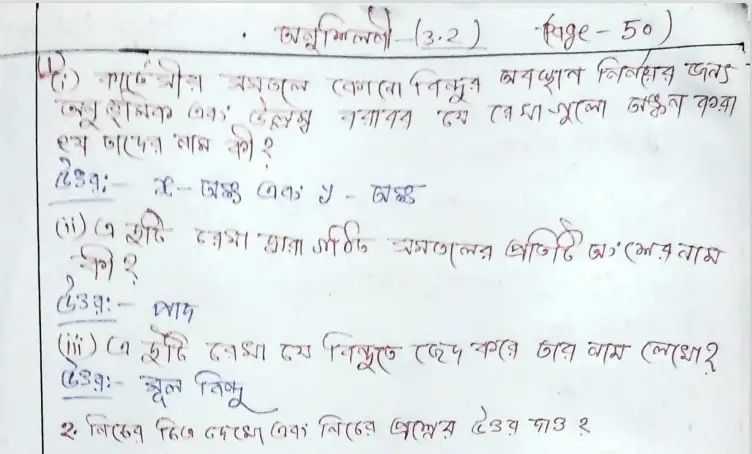 অনুশীলনী-(3.2) (Page - 50)
1(i) কার্টেসীয় সমতলে কোনো বিন্দুর অবস্থান নির্ণয়ের জন্য
অনুভূমিক এবং উলম্ব বরাবর যে রেখাগুলো অঙ্কন করা
হয় তাদের নাম কী?
উত্তর:- x - অক্ষ এবং y - অক্ষ
(ii) এ দুটি রেখা দ্বারা গঠিত সমতলের প্রতিটি অংশের নাম
কী?
উত্তর:- পাদ
(iii) এ দুটি রেখা যে বিন্দুতে ছেদ করে তার নাম লেখো?
উত্তর:- মূল বিন্দু
২. নিচের চিত্র দেখো এবং নিচের প্রশ্নের উত্তর দাও?